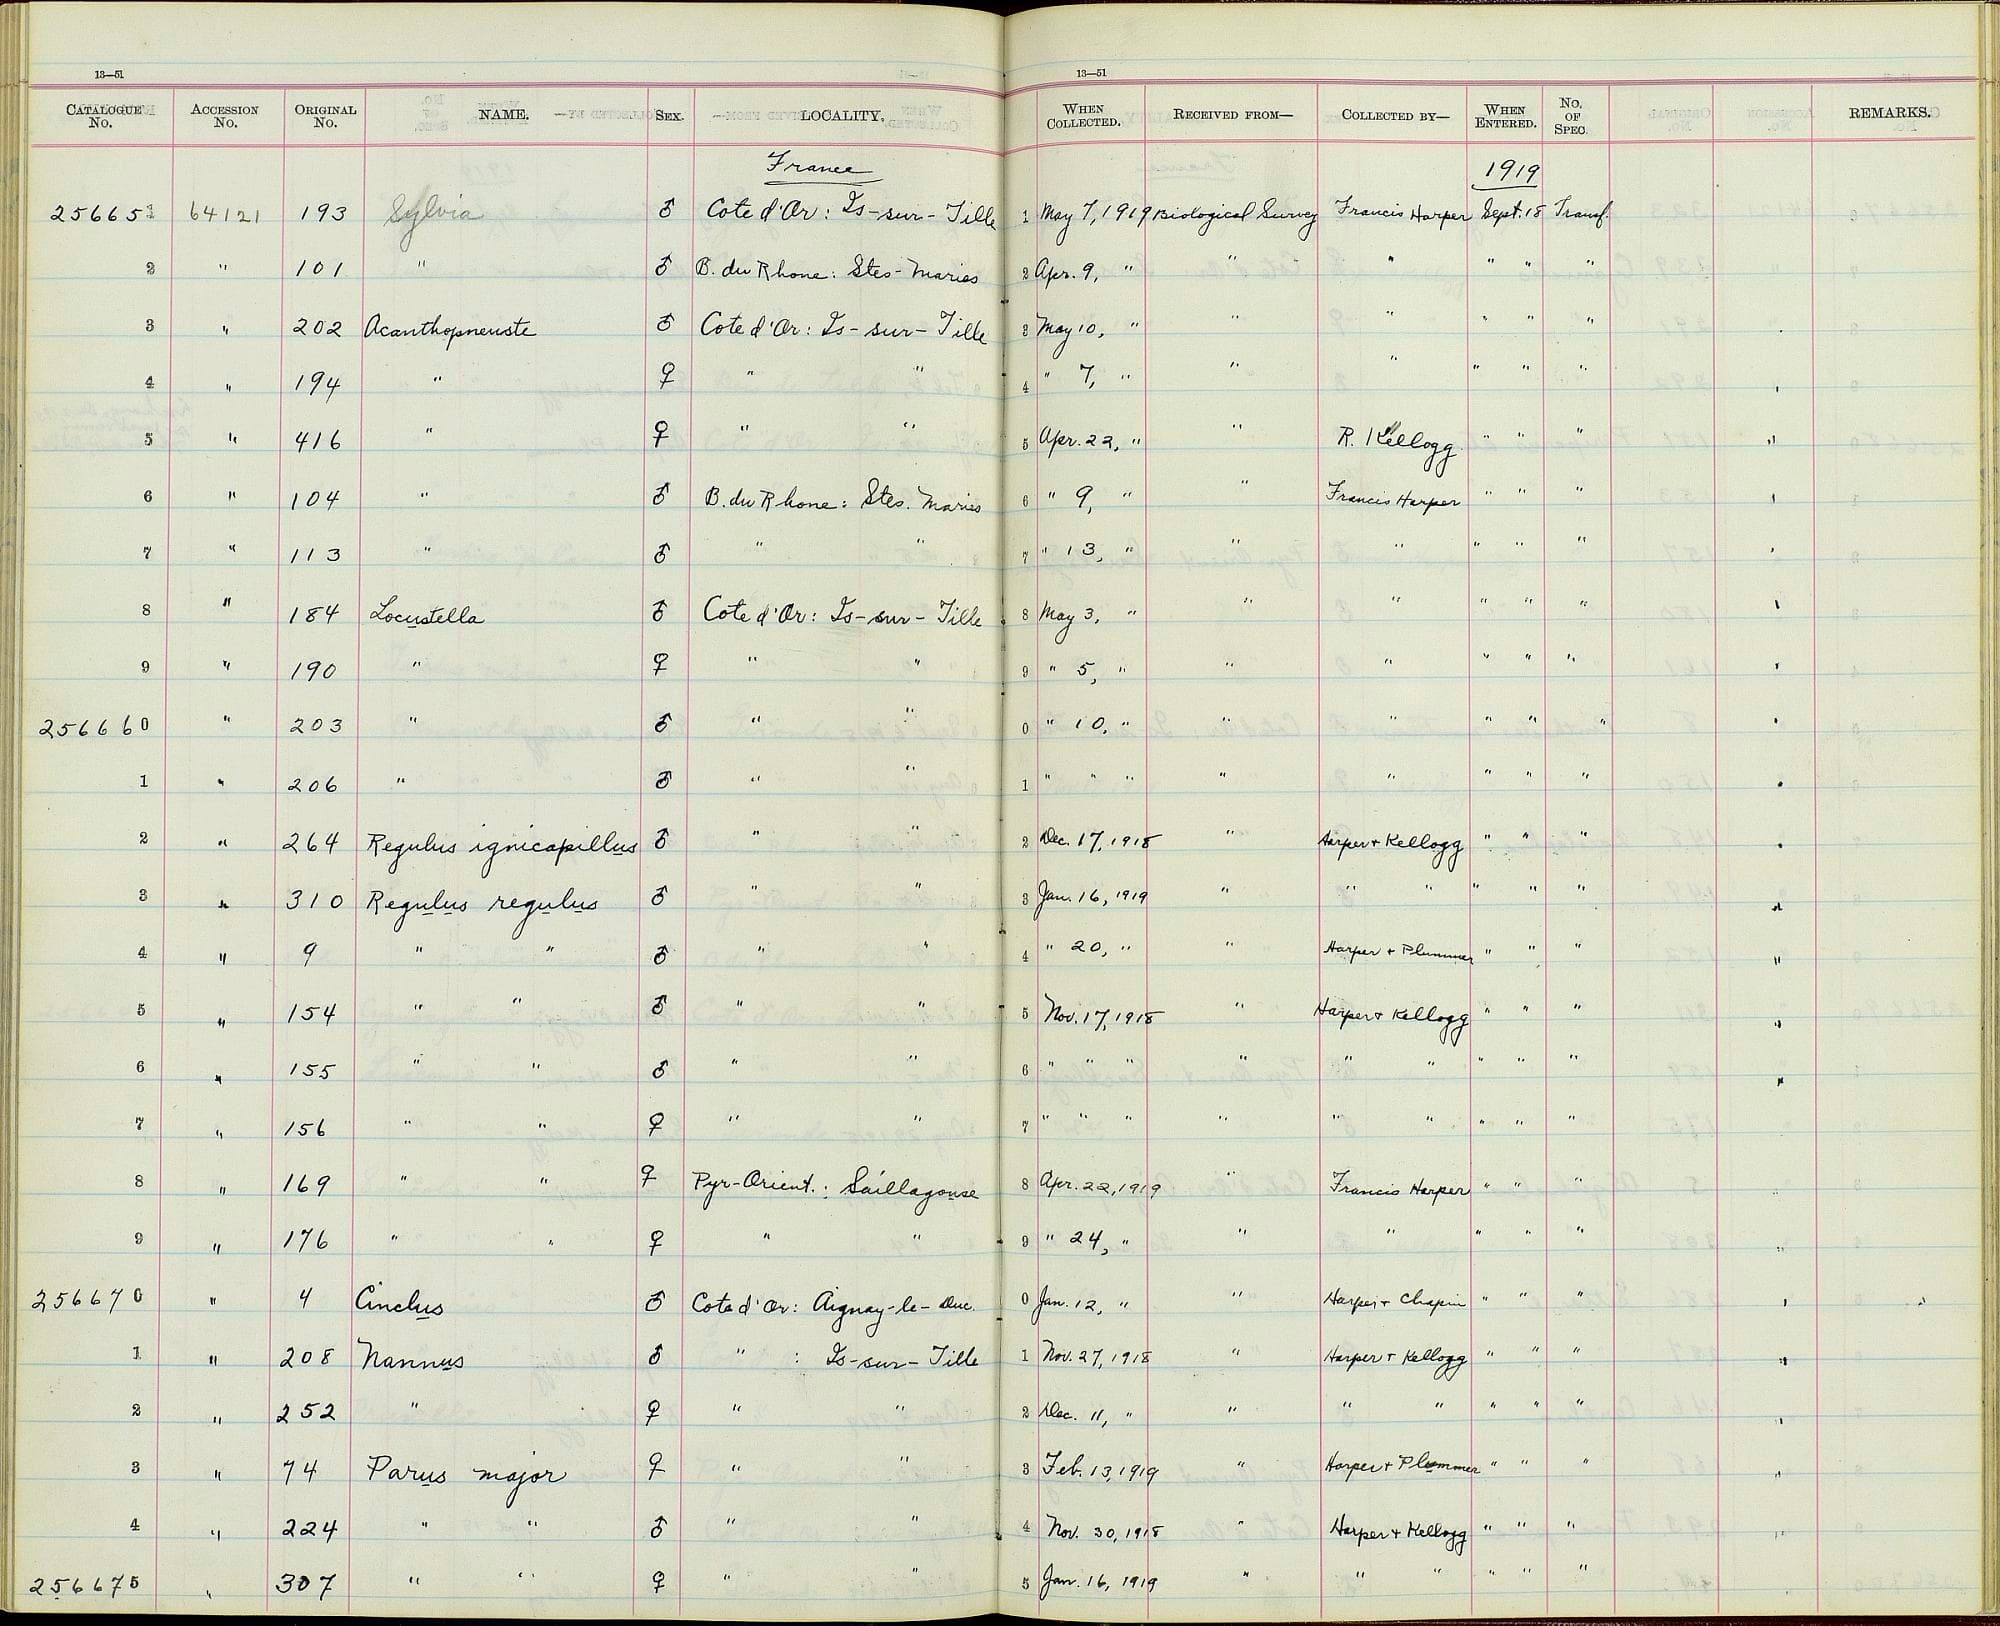 13—51
13—51
CATALOGUE No. ACCESSION No. ORIGINAL No. NAME. SEX. LOCALITY. WHEN COLLECTED. RECEIVED FROM— COLLECTED BY— WHEN ENTERED. No. OF SPEC. REMARKS.
France 1919
256651 64121 193 Sylvia ♂ Cote d'Or: Is-sur-Tille 1 May 7, 1919 Biological Survey Francis Harper Sept. 18 Transf.
2 " 101 " ♂ B. du Rhone: Stes-Maries 2 Apr. 9, " " " " " "
3 " 202 Acanthopneuste ♂ Cote d'Or: Is-sur-Tille 3 May 10, " " " " " "
4 " 194 " ♀ " " 4 " 7, " " " " " "
5 " 416 " ♀ " " 5 Apr. 22, " " R. Kellogg " " "
6 " 104 " ♂ B. du Rhone: Stes. Maries 6 " 9, " " Francis Harper " " "
7 " 113 " ♂ " " 7 " 13, " " " " " "
8 " 184 Locustella ♂ Cote d'Or: Is-sur-Tille 8 May 3, " " " " " "
9 " 190 " ♀ " " 9 " 5, " " " " " "
256660 " 203 " ♂ " " 0 " 10, " " " " " "
1 " 206 " ♂ " " 1 " " " " " " " "
2 " 264 Regulus ignicapillus ♂ " " 2 Dec. 17, 1918 " Harper + Kellogg " " "
3 " 310 Regulus regulus ♂ " " 3 Jan. 16, 1919 " " " " " "
4 " 9 " " ♂ " " 4 " 20, " " Harper + Plummer " " "
5 " 154 " " ♂ " " 5 Nov. 17, 1918 " Harper + Kellogg " " "
6 " 155 " " ♂ " " 6 " " " " " " " " "
7 " 156 " " ♀ " " 7 " " " " " " " " "
8 " 169 " " ♀ Pyr-Orient.: Saillagouse 8 Apr. 22, 1919 " Francis Harper " " "
9 " 176 " " ♀ " " 9 " 24, " " " " " "
256670 " 4 Cinclus ♂ Cote d'Or: Aignay-le-Duc. 0 Jan. 12, " " Harper + Chapin " " "
1 " 208 Nannus ♂ " : Is-sur-Tille 1 Nov. 27, 1918 " Harper + Kellogg " " "
2 " 252 " ♀ " " 2 Dec. 11, " " " " " " "
3 " 74 Parus major ♀ " " 3 Feb. 13, 1919 " Harper + Plummer " " "
4 " 224 " " ♂ " " 4 Nov. 30, 1918 " Harper + Kellogg " " "
256675 " 307 " " ♀ " " 5 Jan. 16, 1919 " " " " " "